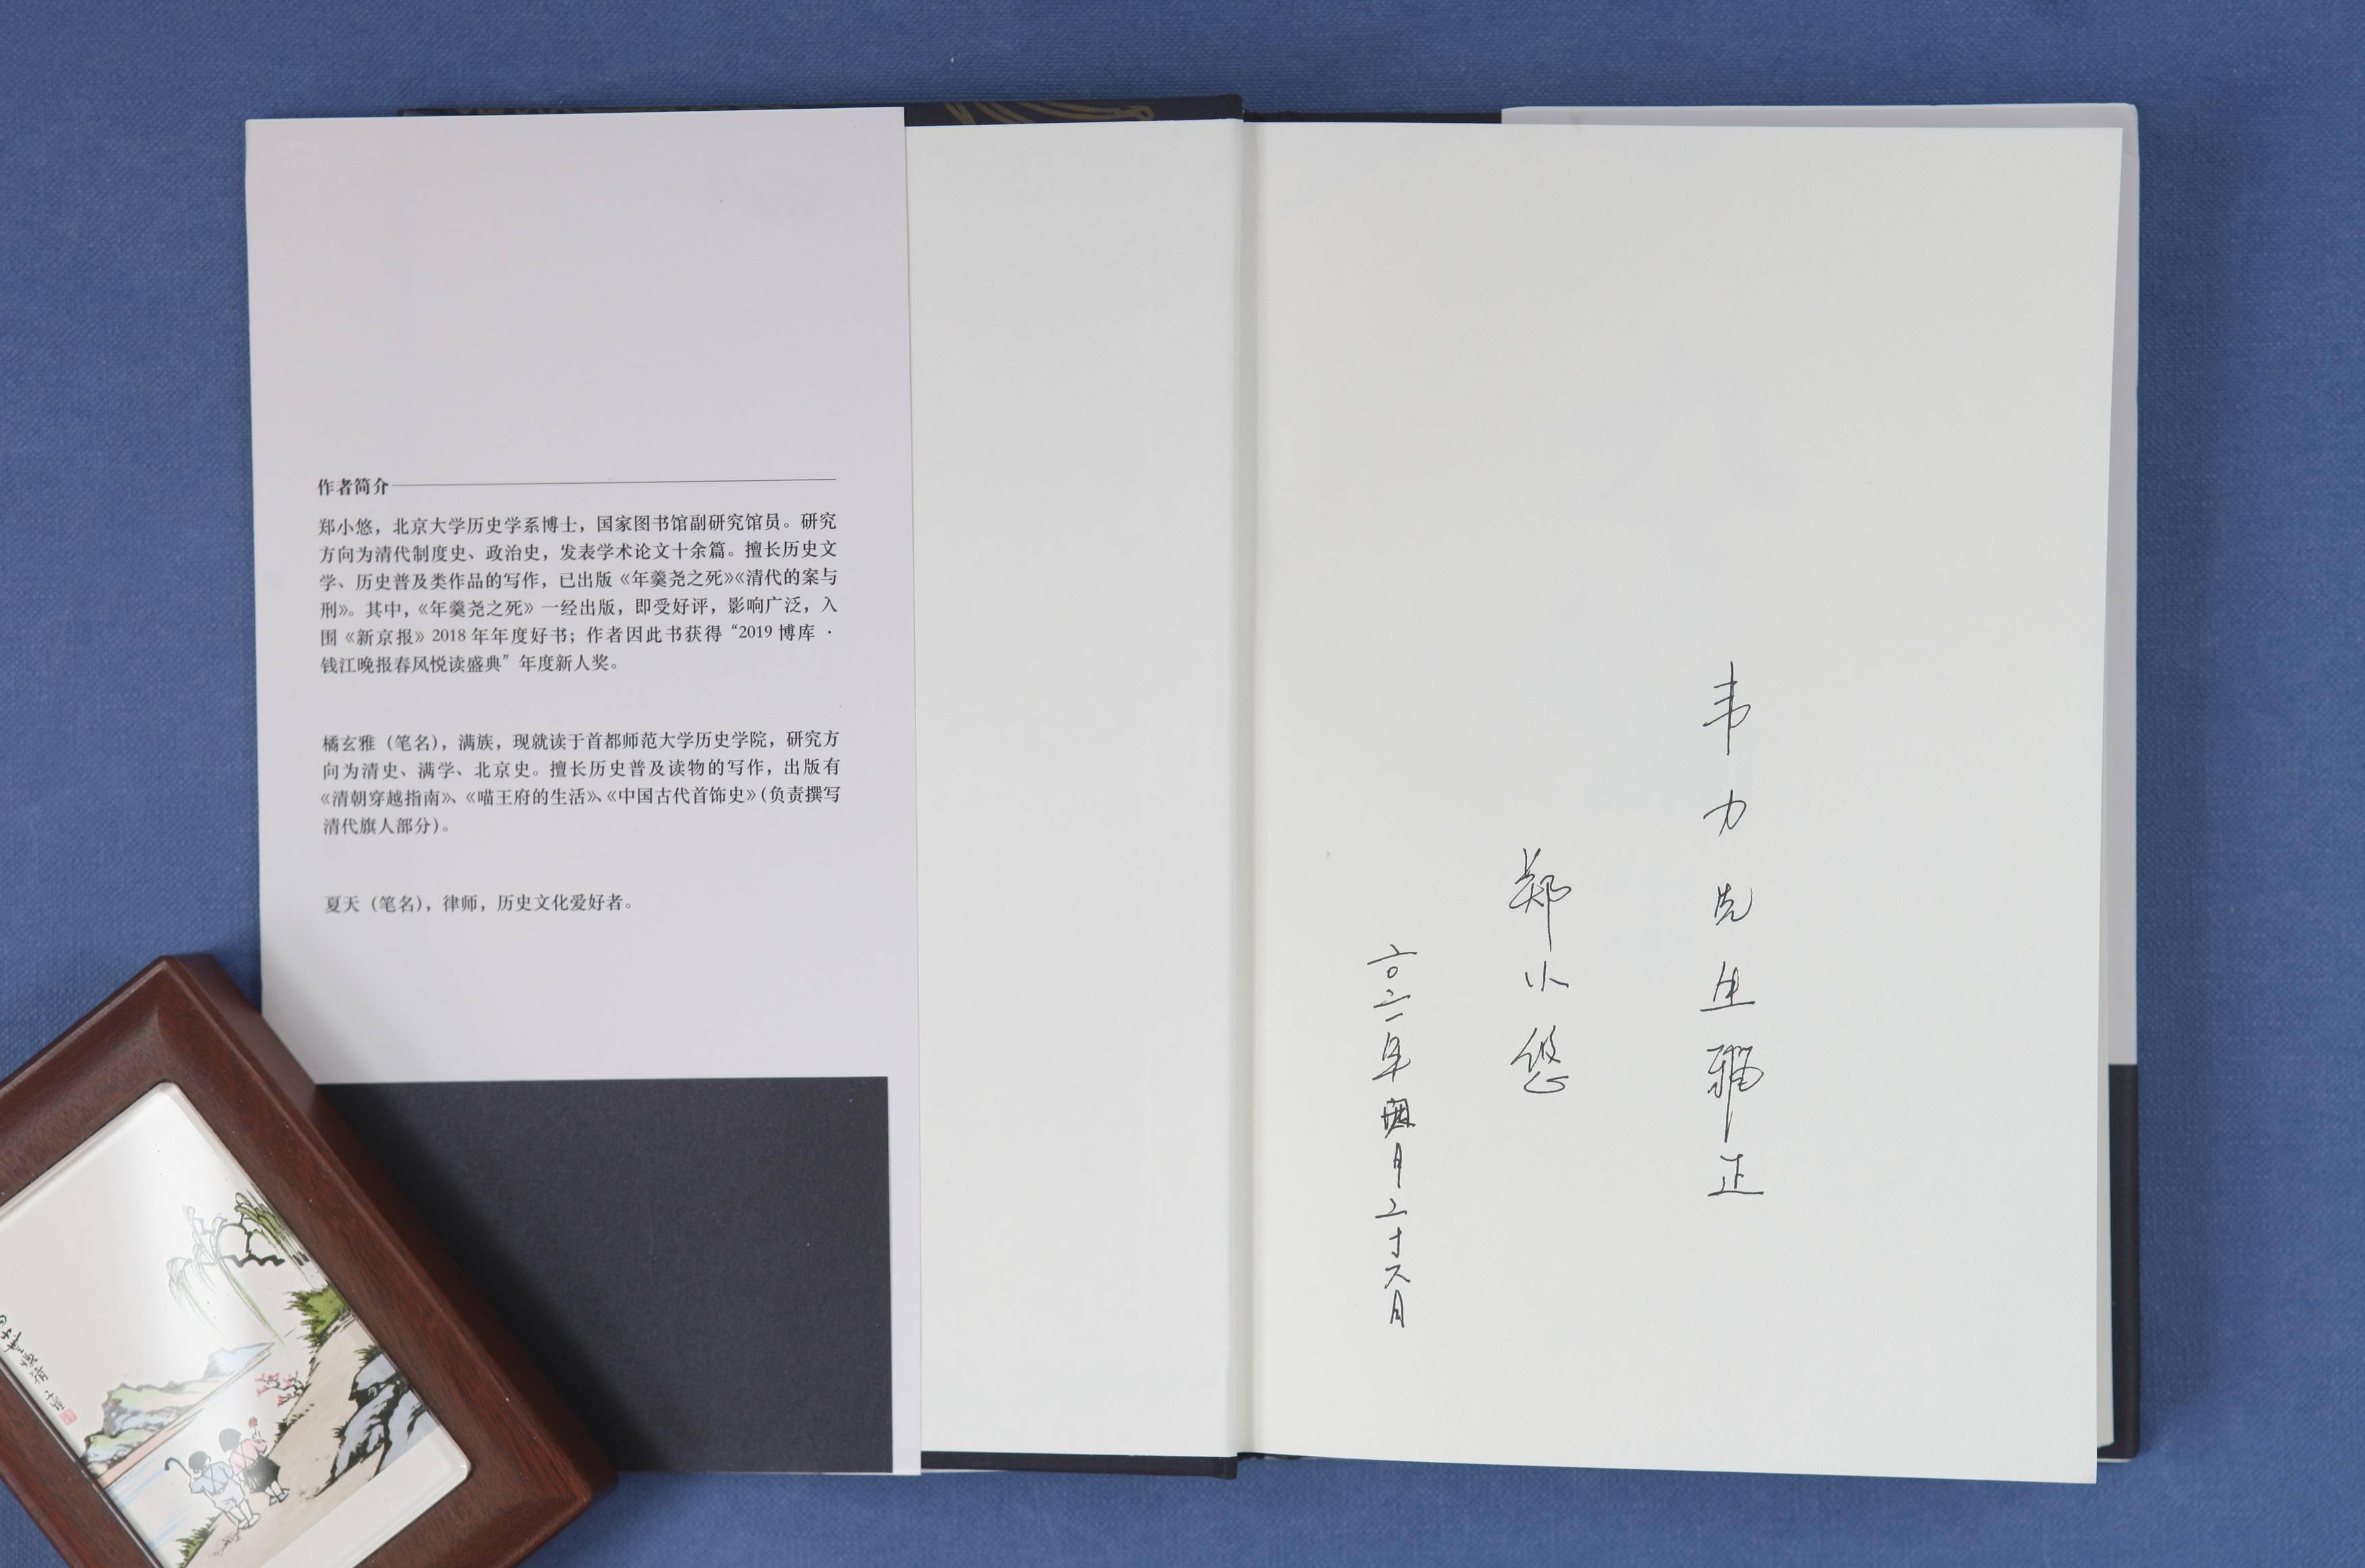 作者简介
郑小悠，北京大学历史学系博士，国家图书馆副研究馆员。研究
方向为清代制度史、政治史，发表学术论文十余篇。擅长历史文
学、历史普及类作品的写作，已出版《年羹尧之死》《清代的案与
刑》。其中，《年羹尧之死》一经出版，即受好评，影响广泛，入
围《新京报》2018 年年度好书；作者因此书获得“2019 博库 ·
钱江晚报春风悦读盛典”年度新人奖。
橘玄雅（笔名），满族，现就读于首都师范大学历史学院，研究方
向为清史、满学、北京史。擅长历史普及读物的写作，出版有
《清朝穿越指南》、《喵王府的生活》、《中国古代首饰史》（负责撰写
清代旗人部分）。
夏天（笔名），律师，历史文化爱好者。
韦力先生雅正
郑小悠
二〇二一年 月二十六日